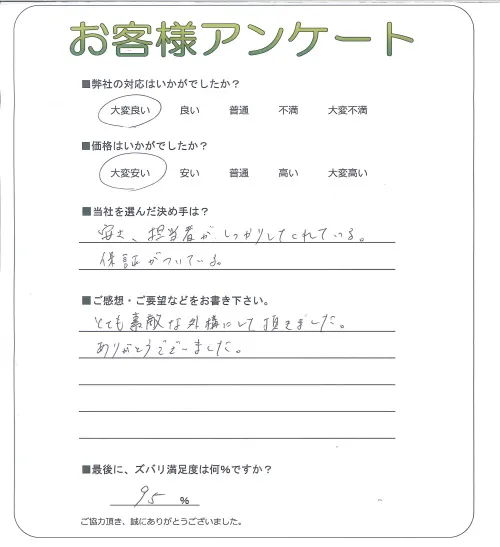 お客様アンケート
■弊社の対応はいかがでしたか？
大変良い 良い 普通 不満 大変不満
■価格はいかがでしたか？
大変安い 安い 普通 高い 大変高い
■当社を選んだ決め手は？
安さ、担当者がしっかりしてくれている。
保証がついている。
■ご感想・ご要望などをお書き下さい。
とても素敵な外構にして頂きました。
ありがとうございました。
■最後に、ズバリ満足度は何％ですか？
95 %
ご協力頂き、誠にありがとうございました。